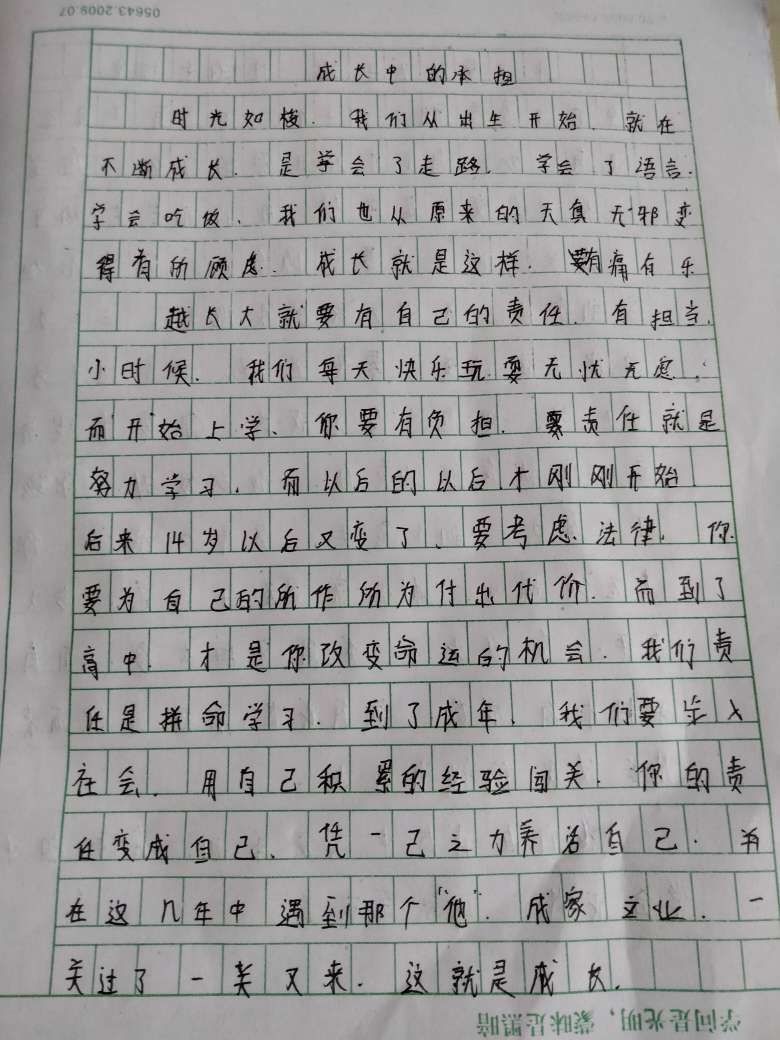 05643.2009.07
成长中的承担
时光如梭.我们从出生开始.就在
不断成长.是学会了走路.学会了语言.
学会吃饭.我们也从原来的天真无邪变
得有所顾虑.成长就是这样.有痛有乐
越长大就要有自己的责任.有担当.
小时候.我们每天快乐玩耍无忧无虑;
而"开始"上学.你要有负担.责任就是
努力学习.而以后的以后才刚刚开始
后来14岁以后又变了.要考虑法律.你
要为自己的所作所为付出代价.而到了
高中.才是你改变命运的机会.我们责
任是拼命学习.到了成年.我们要步入
社会.用自己积累的经验闯关.你的责
任变成自己.凭一己之力养活自己.并
在这几年中遇到那个"他".成家立业.一
关过了一关又来.这就是成长.
学问是光明,蒙昧是黑暗